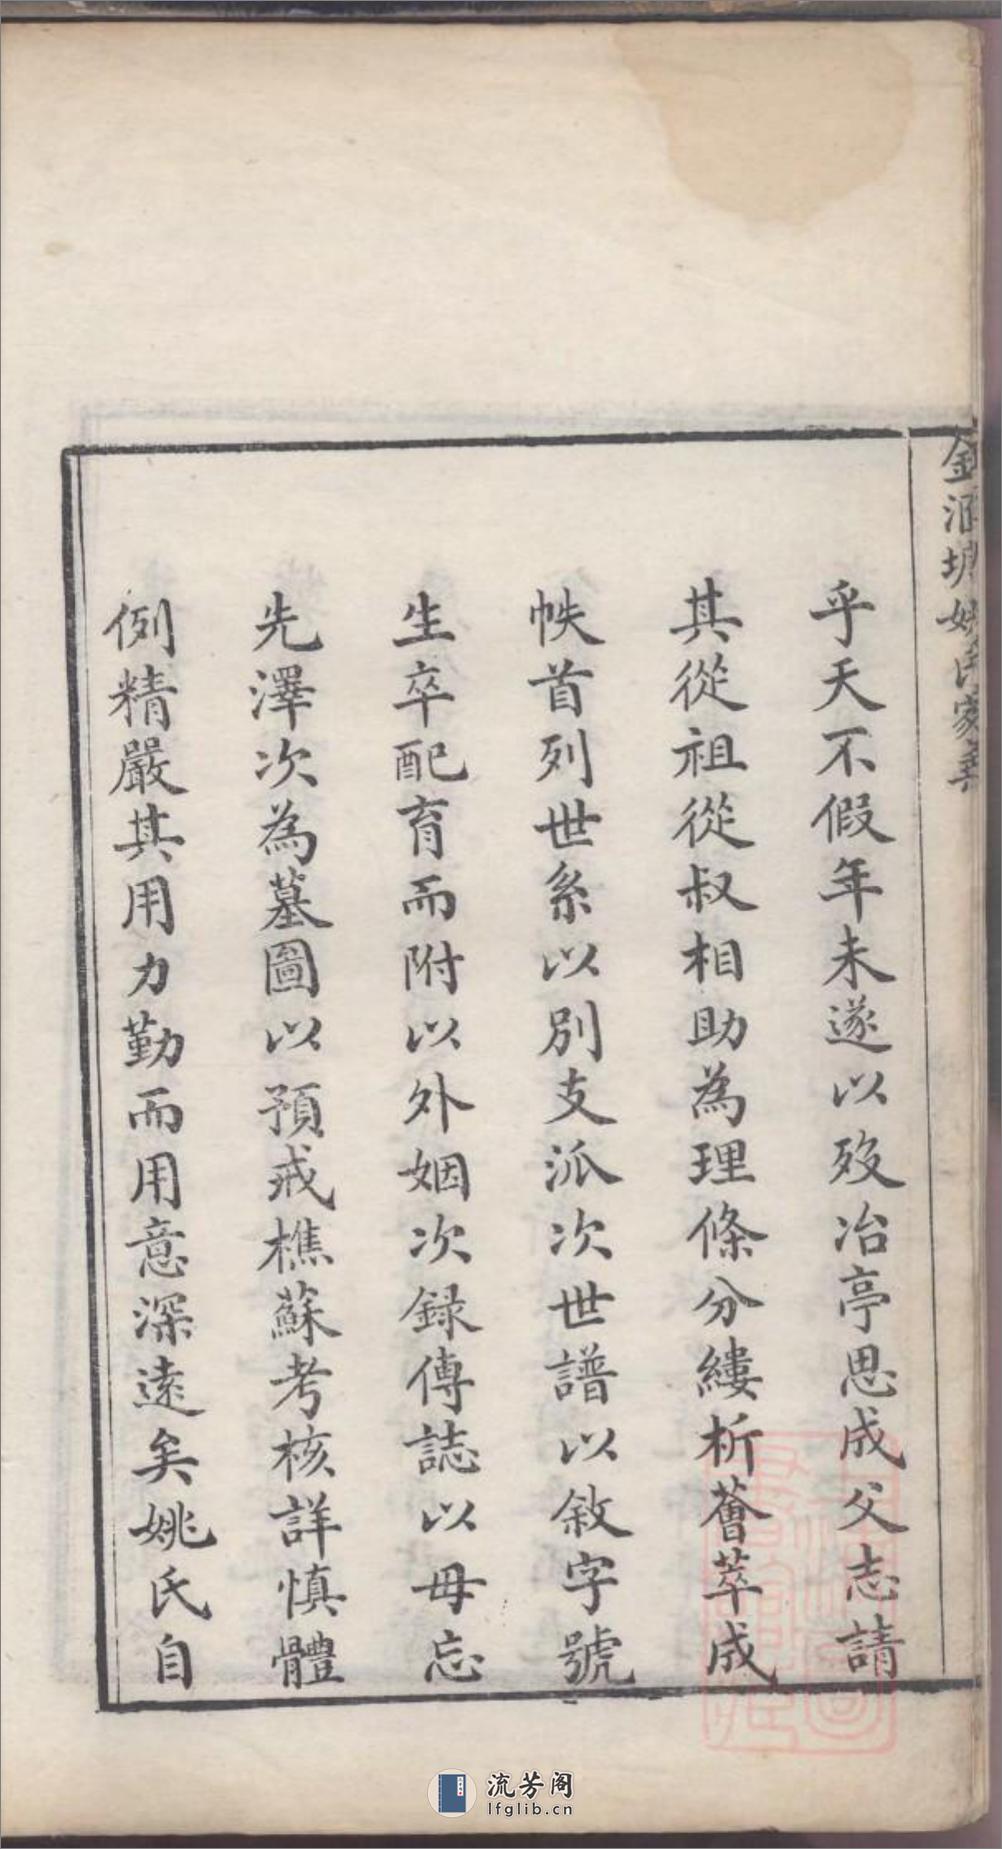 金涌塘姚氏家乘
乎天不假年未遂以歿冶亭思成父志請
其從祖從叔相助為理條分縷析薈萃成
帙首列世系以別支派次世譜以敘字號
生卒配育而附以外姻次録傳誌以毋忘
先澤次為墓圖以預戒樵蘇考核詳慎體
例精嚴其用力勤而用意深遠矣姚氏自
流芳阁
lfglib.cn